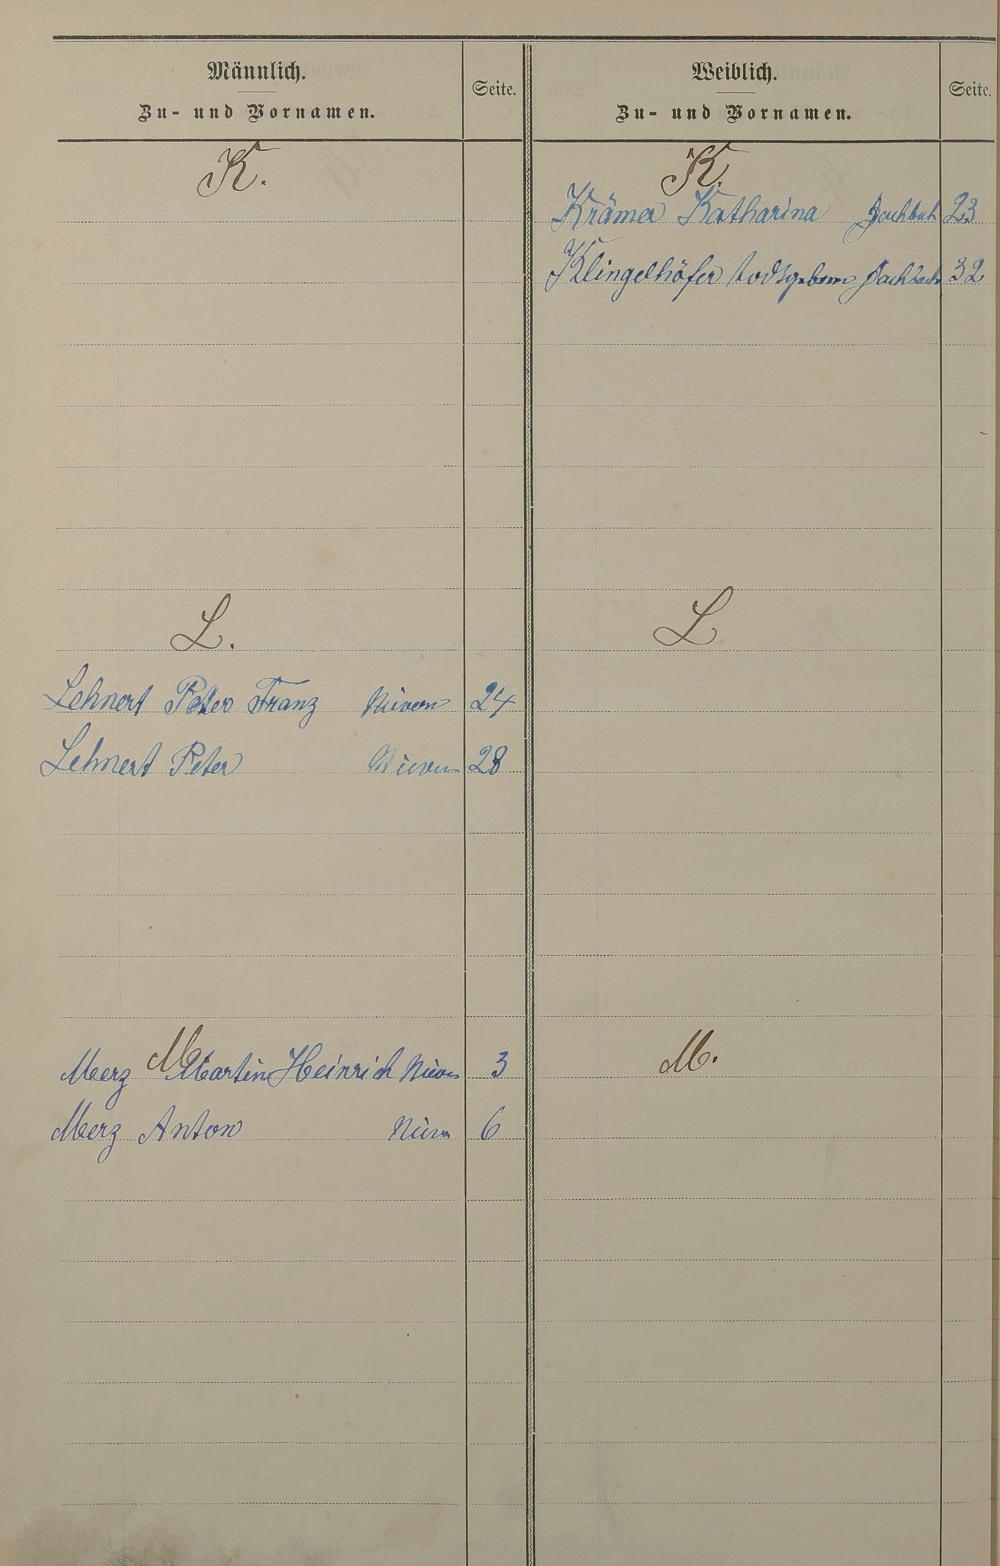 Männlich.
Zu- und Vornamen.
Seite.
K.
L.
Lehnert Peter Franz Nievern 24
Lehnert Peter Nievern 28
M.
Merz Martin Heinrich Nievern 3
Merz Anton 6
Weiblich.
Zu- und Vornamen.
Seite.
K.
Krämer Katharina Fachbach 23
Klingelhöfer todtgeboren Fachbach 32
L
M.